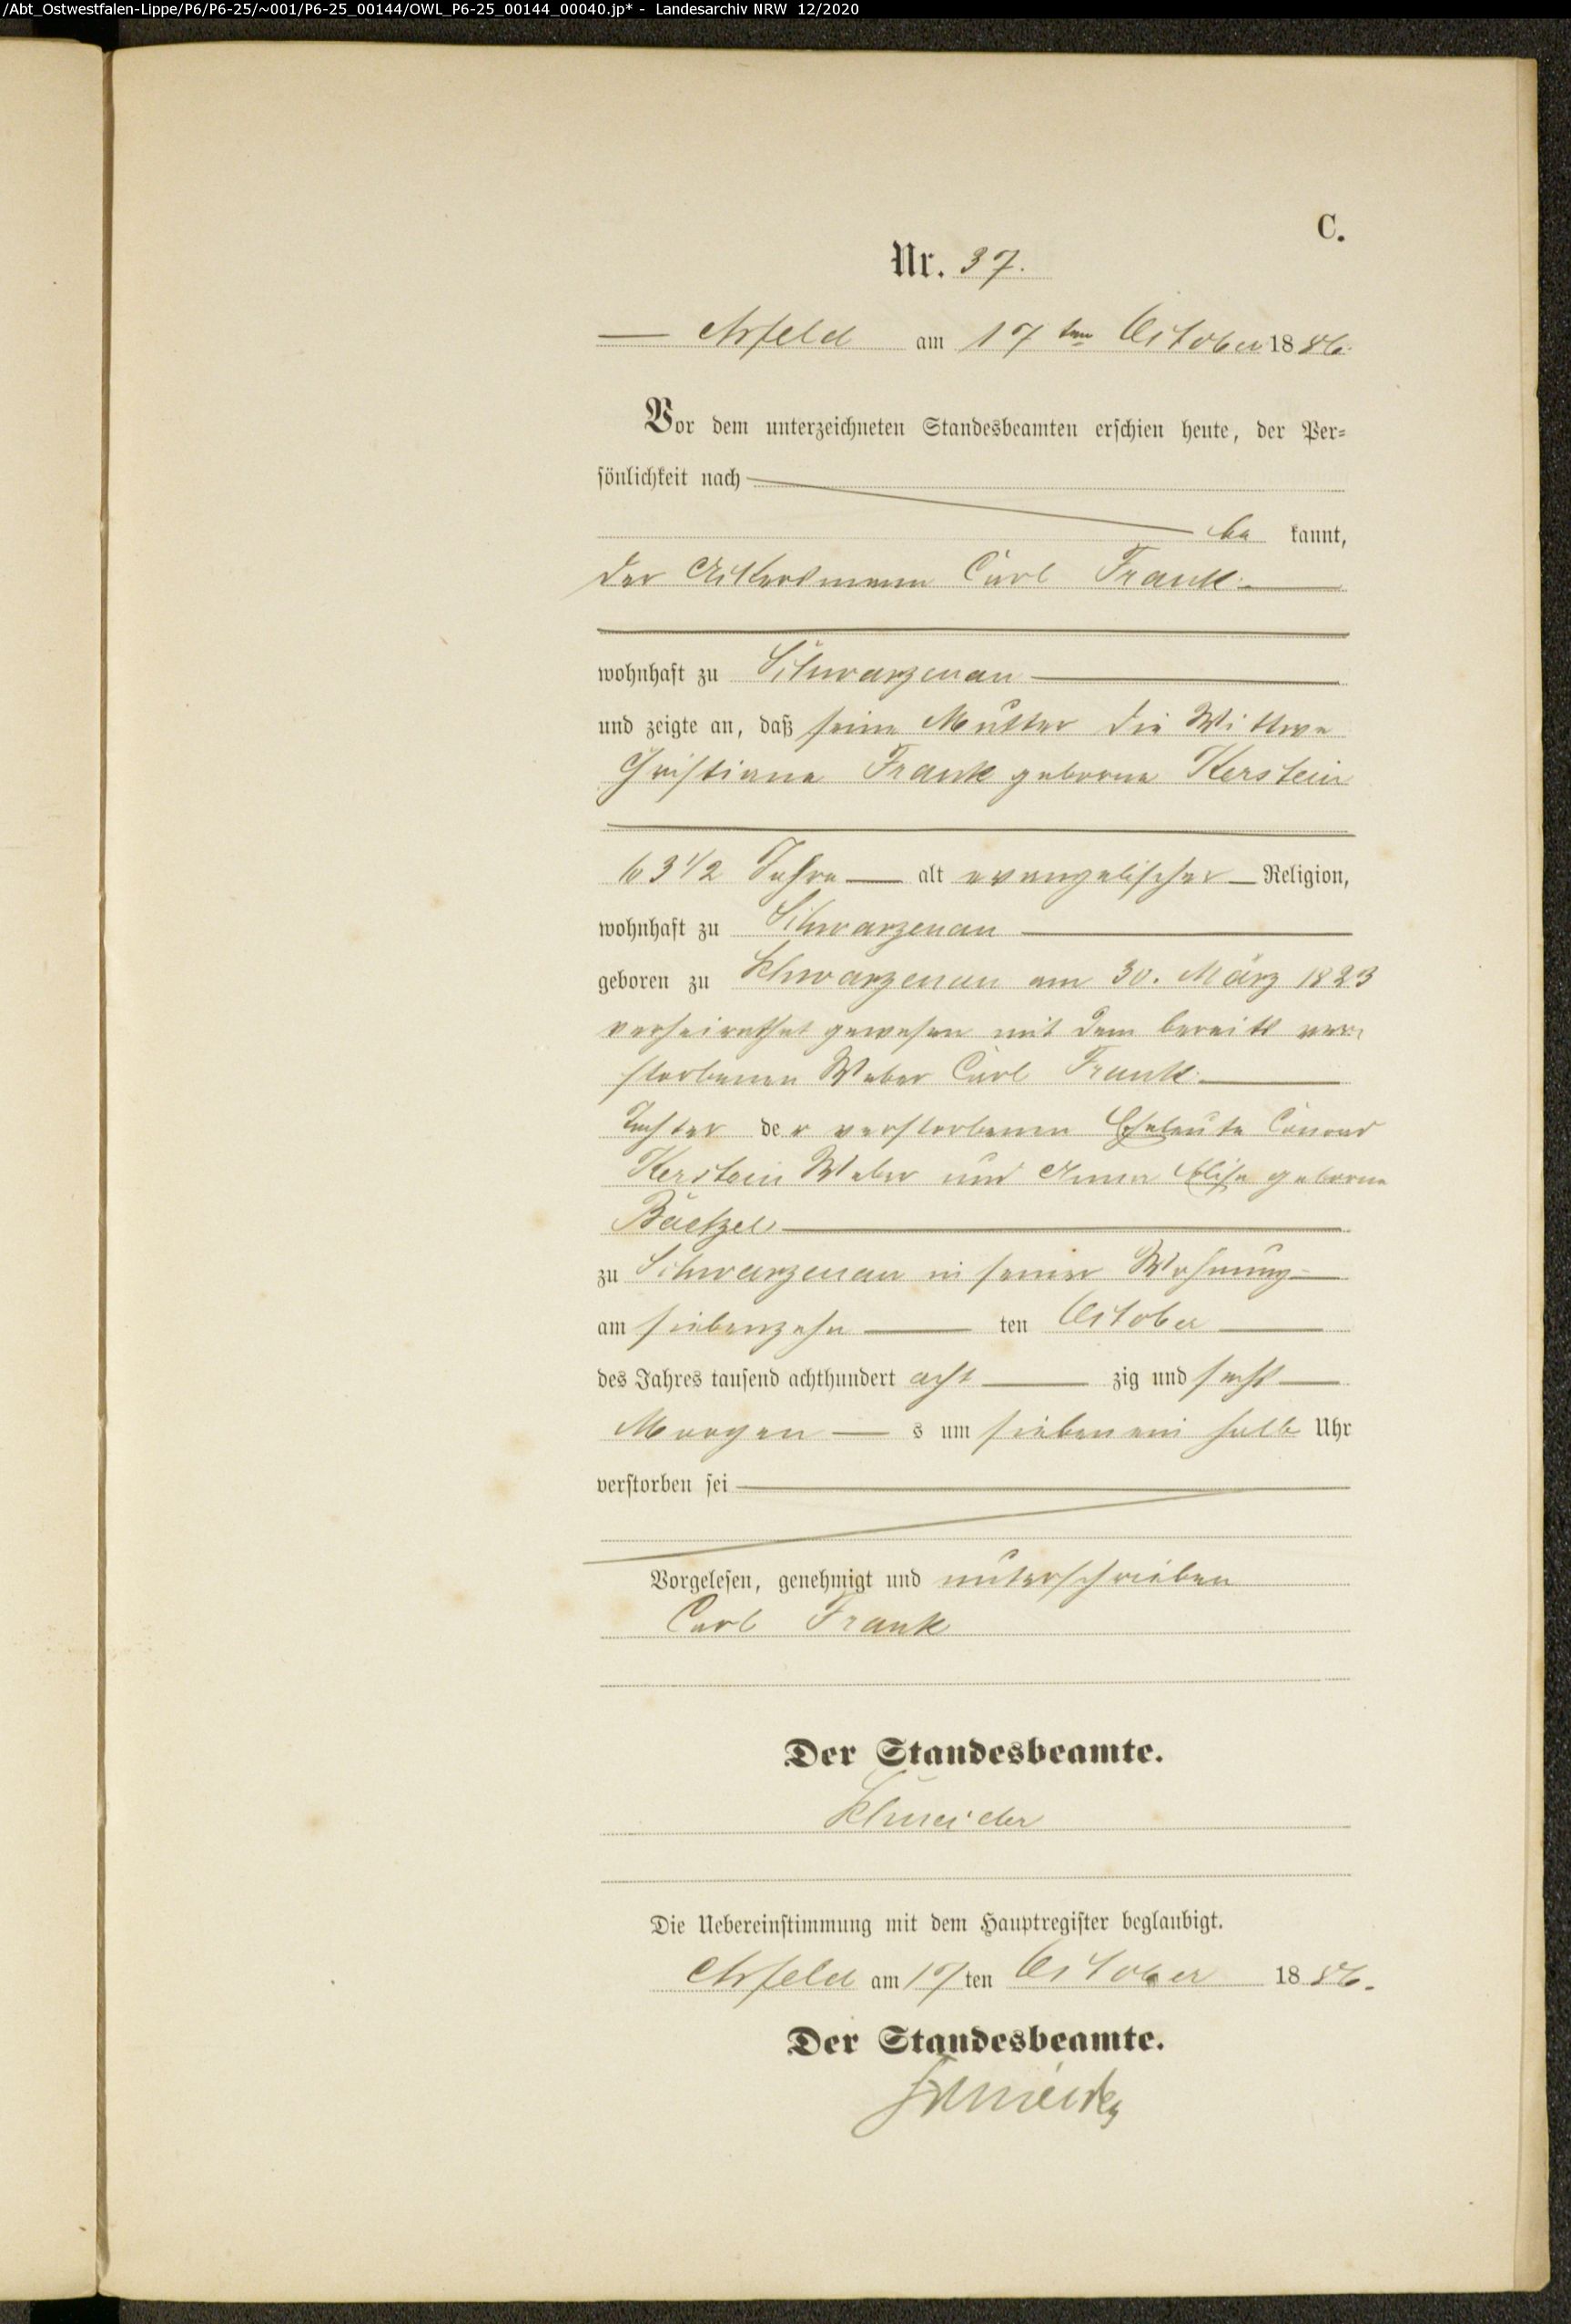 /Abt_Ostwestfalen-Lippe/P6/P6-25/~001/P6-25_00144/OWL_P6-25_00144_00040.jp* - Landesarchiv NRW 12/2020
C.
Nr. 37.
Arfeld am 17ten October 1886.
Vor dem unterzeichneten Standesbeamten erschien heute, der Per-
sönlichkeit nach
be kannt,
der Ackersmann Carl Frank
wohnhaft zu Schwarzenau
und zeigte an, daß seine Mutter die Wittwe
Christiane Frank geborne Kerstein
63 1/2 Jahre alt evangelischer Religion,
wohnhaft zu Schwarzenau
geboren zu Schwarzenau am 30. März 1823
verheirathet gewesen mit dem bereits ver-
storbenen Weber Carl Frank
Tochter der verstorbenen Eheleute Conrad
Kerstein Weber und Anna Elise geborne
Baetzel
zu Schwarzenau in seiner Wohnung
am siebenzehn ten October
des Jahres tausend achthundert acht zig und sechs
Morgen s um sieben ein halb Uhr
verstorben sei
Vorgelesen, genehmigt und unterschrieben
Carl Frank
Der Standesbeamte.
Schneider
Die Uebereinstimmung mit dem Hauptregister beglaubigt.
Arfeld am 17ten October 1886.
Der Standesbeamte.
Schneider